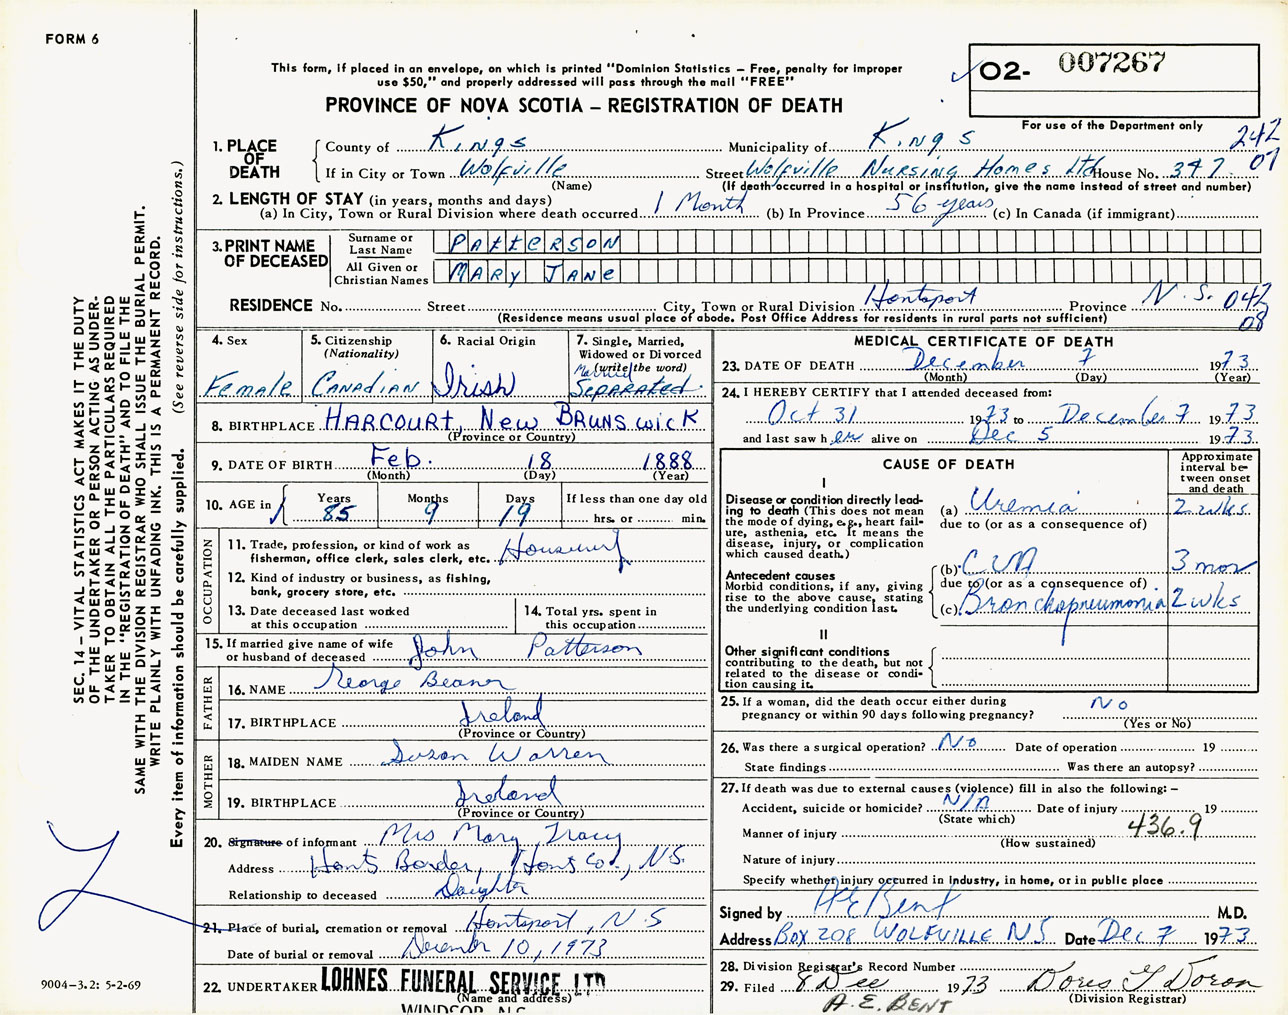 FORM 6
This form, if placed in an envelope, on which is printed "Dominion Statistics – Free, penalty for improper
use $50," and properly addressed will pass through the mail "FREE"
PROVINCE OF NOVA SCOTIA – REGISTRATION OF DEATH
O2- 007267
For use of the Department only
242
07
1. PLACE OF DEATH County of Kings Municipality of Kings
If in City or Town Wolfville Street Wolfville Nursing Homes Ltd House No. 347
(Name) (If death occurred in a hospital or institution, give the name instead of street and number)
2. LENGTH OF STAY (in years, months and days)
(a) In City, Town or Rural Division where death occurred 1 Month (b) In Province 56 years (c) In Canada (if immigrant)
3. PRINT NAME OF DECEASED
Surname or Last Name PATTERSON
All Given or Christian Names MARY JANE
RESIDENCE No. Street City, Town or Rural Division Hantsport Province N.S. 042
(Residence means usual place of abode. Post Office Address for residents in rural parts not sufficient) 08
4. Sex Female
5. Citizenship (Nationality) CANADIAN
6. Racial Origin Irish
7. Single, Married, Widowed or Divorced (write the word) Married Separated
8. BIRTHPLACE HARCOURT, New BRUNSwicK
(Province or Country)
9. DATE OF BIRTH Feb. 18 1888
(Month) (Day) (Year)
10. AGE in Years 85 Months 9 Days 19 If less than one day old hrs. or min.
OCCUPATION
11. Trade, profession, or kind of work as
fisherman, office clerk, sales clerk, etc. Housewife
12. Kind of industry or business, as fishing,
bank, grocery store, etc.
13. Date deceased last worked at this occupation
14. Total yrs. spent in this occupation
15. If married give name of wife
or husband of deceased John Patterson
FATHER
16. NAME George Beaner
17. BIRTHPLACE Ireland
(Province or Country)
MOTHER
18. MAIDEN NAME Suzan Warren
19. BIRTHPLACE Ireland
(Province or Country)
20. Signature of informant Mrs Mary Tracy
Address Hants Border, Hants Co., N.S.
Relationship to deceased Daughter
21. Place of burial, cremation or removal Hantsport, N.S
Date of burial or removal December 10, 1973
22. UNDERTAKER LOHNES FUNERAL SERVICE LTD
(Name and address)
WINDSOR, N.S.
MEDICAL CERTIFICATE OF DEATH
23. DATE OF DEATH December 7 1973
(Month) (Day) (Year)
24. I HEREBY CERTIFY that I attended deceased from:
Oct 31 1973 to December 7 1973
and last saw h er alive on Dec 5 1973
CAUSE OF DEATH
Approximate interval between onset and death
I
Disease or condition directly lead-
ing to death (This does not mean
the mode of dying, e.g., heart fail-
ure, asthenia, etc. It means the
disease, injury, or complication
which caused death.)
(a) Uremia 2 wks.
due to (or as a consequence of)
Antecedent causes
Morbid conditions, if any, giving
rise to the above cause, stating
the underlying condition last.
(b) CVA 3 mos
due to (or as a consequence of)
(c) Bronchopneumonia 2 wks
II
Other significant conditions
contributing to the death, but not
related to the disease or condi-
tion causing it.
25. If a woman, did the death occur either during
pregnancy or within 90 days following pregnancy? No
(Yes or No)
26. Was there a surgical operation? No Date of operation 19
State findings Was there an autopsy?
27. If death was due to external causes (violence) fill in also the following: –
Accident, suicide or homicide? N/A Date of injury 19
(State which)
Manner of injury 436.9
(How sustained)
Nature of injury
Specify whether injury occurred in industry, in home, or in public place
Signed by A E Bent M.D.
Address Box 208 WOLFVILLE N S Date Dec 7 1973
28. Division Registrar's Record Number
29. Filed 8 Dec 1973 Doris G Doran
(Division Registrar)
A. E. BENT
SEC. 14 – VITAL STATISTICS ACT MAKES IT THE DUTY
OF THE UNDERTAKER OR PERSON ACTING AS UNDER-
TAKER TO OBTAIN ALL THE PARTICULARS REQUIRED
IN THE "REGISTRATION OF DEATH" AND TO FILE THE
SAME WITH THE DIVISION REGISTRAR WHO SHALL ISSUE THE BURIAL PERMIT.
WRITE PLAINLY WITH UNFADING INK. THIS IS A PERMANENT RECORD.
Every item of information should be carefully supplied. (See reverse side for instructions.)
9004-3.2: 5-2-69